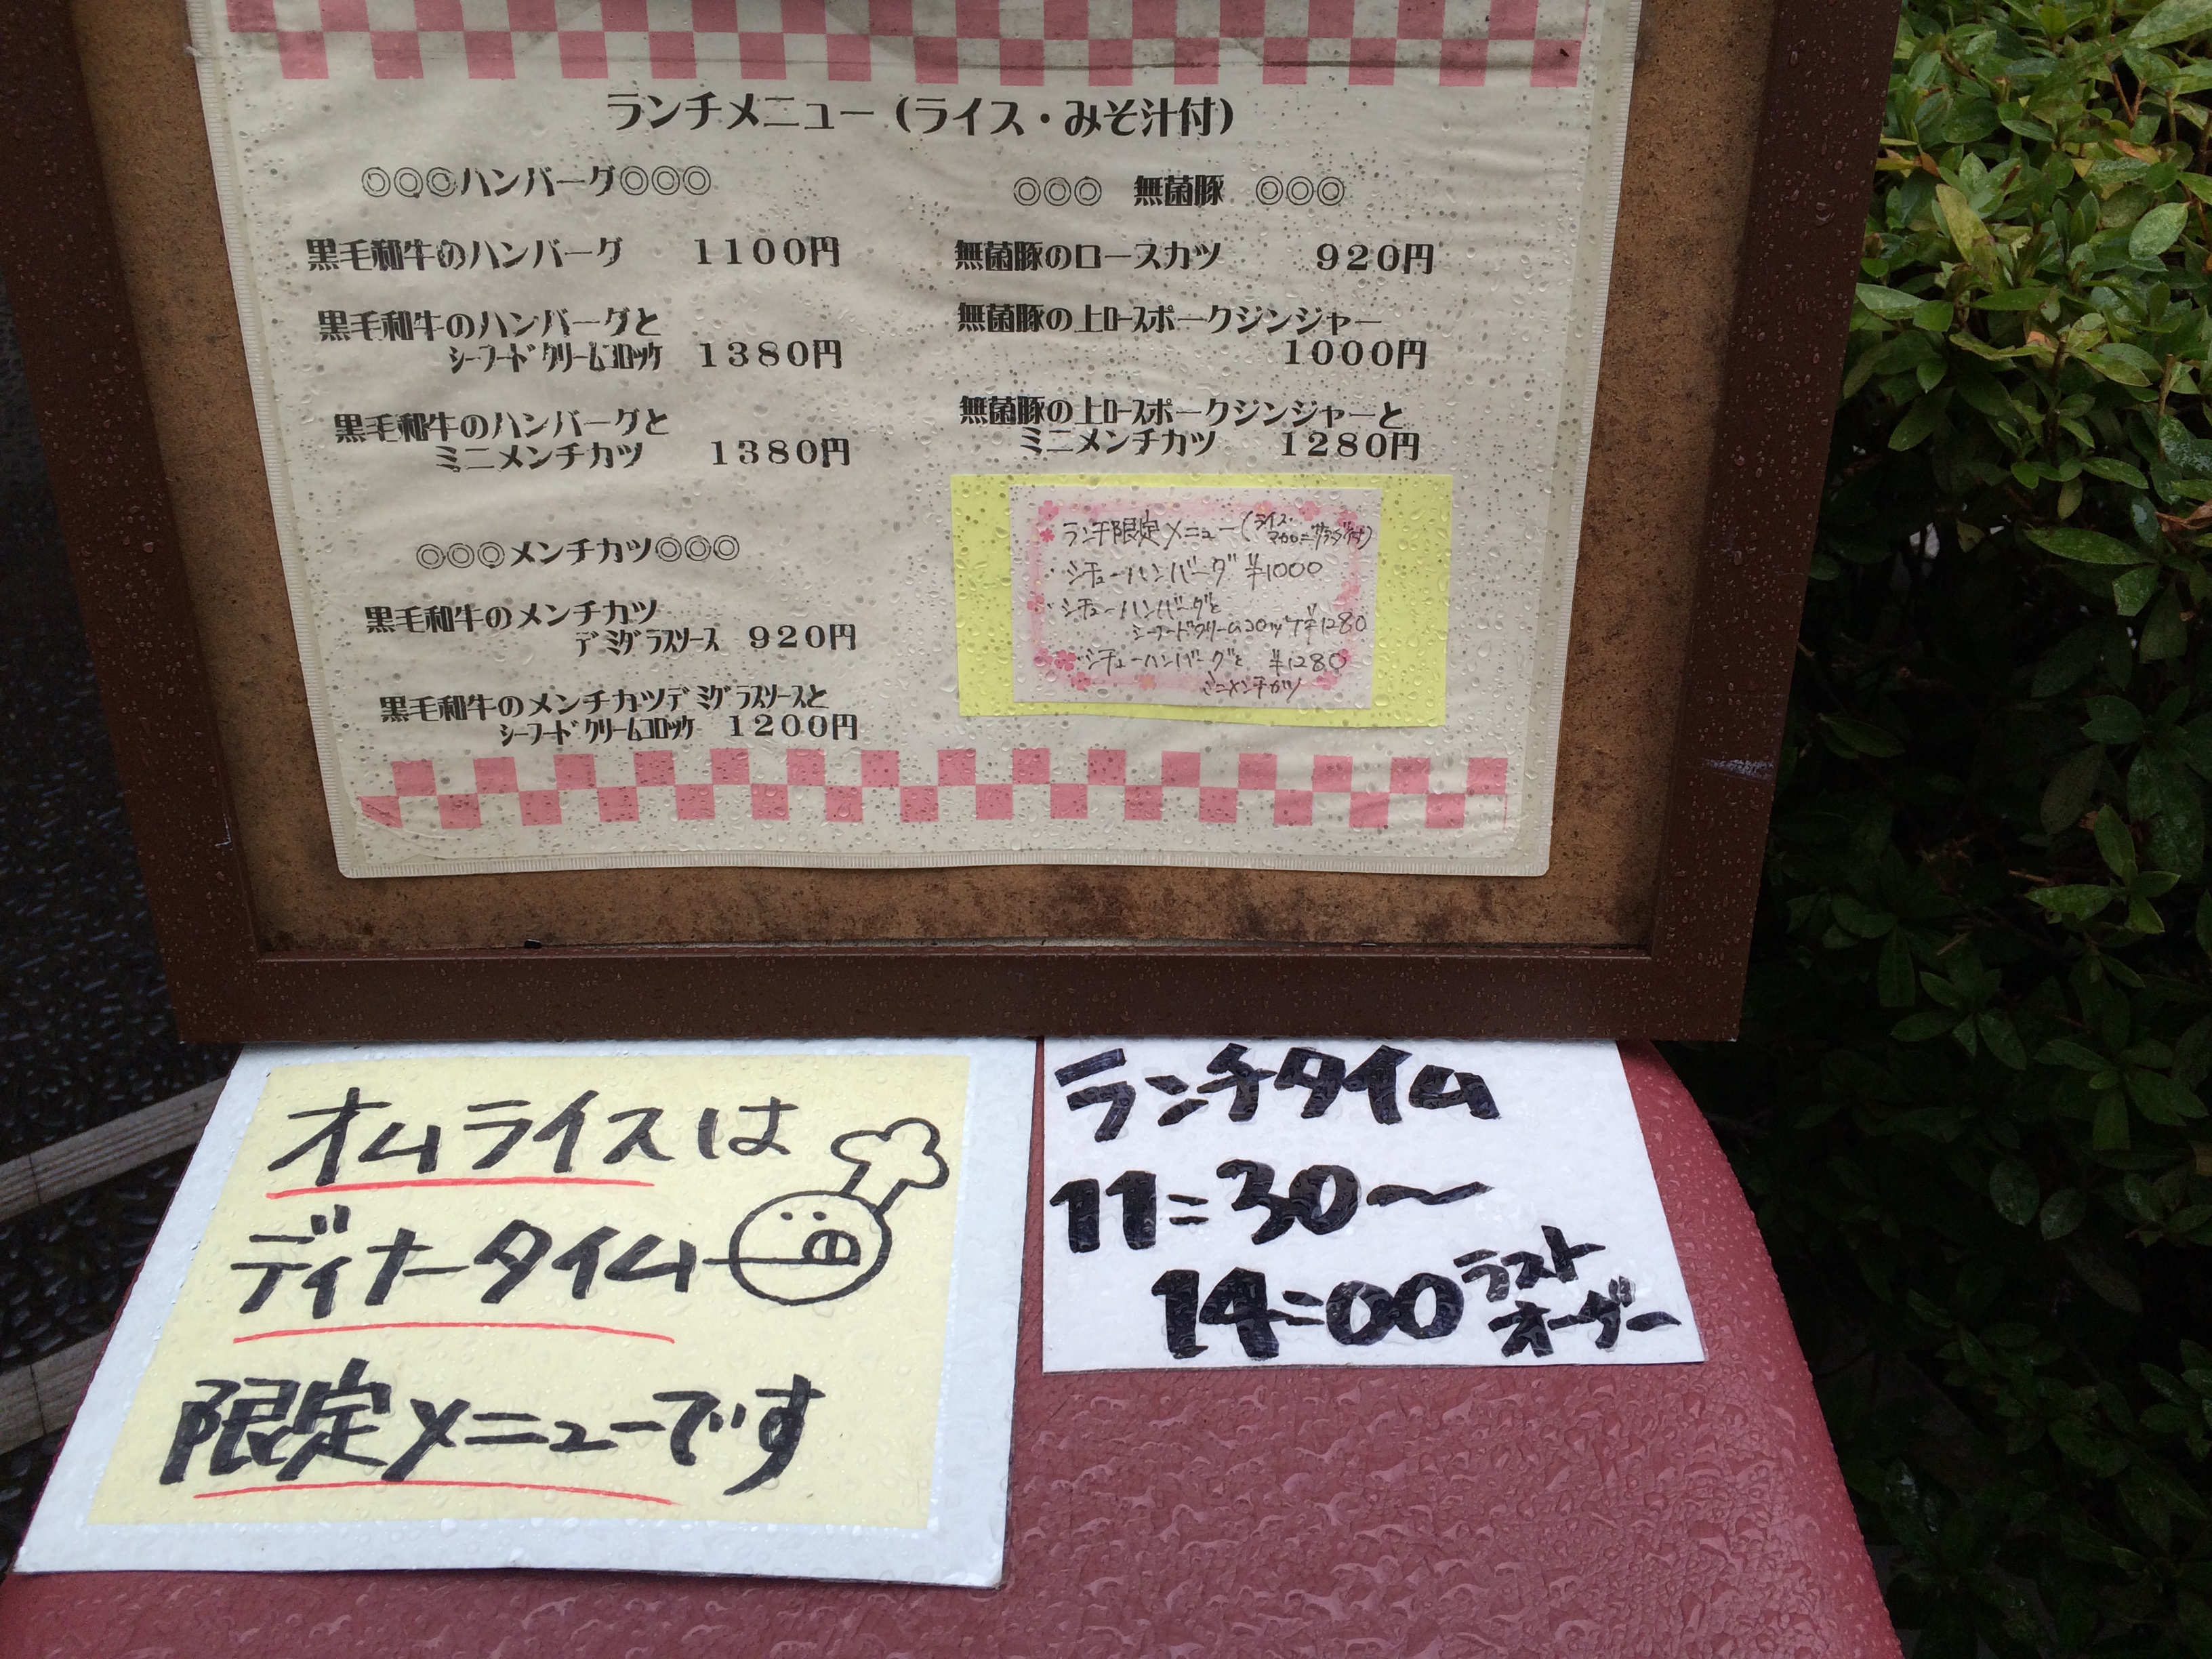 ランチメニュー（ライス・みそ汁付）
◎◎◎ハンバーグ◎◎◎
黒毛和牛のハンバーグ 1100円
黒毛和牛のハンバーグと
シーフードクリームコロッケ 1380円
黒毛和牛のハンバーグと
ミニメンチカツ 1380円
◎◎◎メンチカツ◎◎◎
黒毛和牛のメンチカツ
デミグラスソース 920円
黒毛和牛のメンチカツデミグラスソースと
シーフードクリームコロッケ 1200円
◎◎◎ 無菌豚 ◎◎◎
無菌豚のロースカツ 920円
無菌豚の上ロースポークジンジャー
1000円
無菌豚の上ロースポークジンジャーと
ミニメンチカツ 1280円
ランチ限定メニュー(ライス・
マカロニサラダ付)
・シチューハンバーグ ¥1000
・シチューハンバーグと
シーフードクリームコロッケ ¥1280
・シチューハンバーグと ¥1280
ミニメンチカツ
オムライスは
ディナータイム
限定メニューです
ランチタイム
11:30〜
14:00 ラスト
オーダー